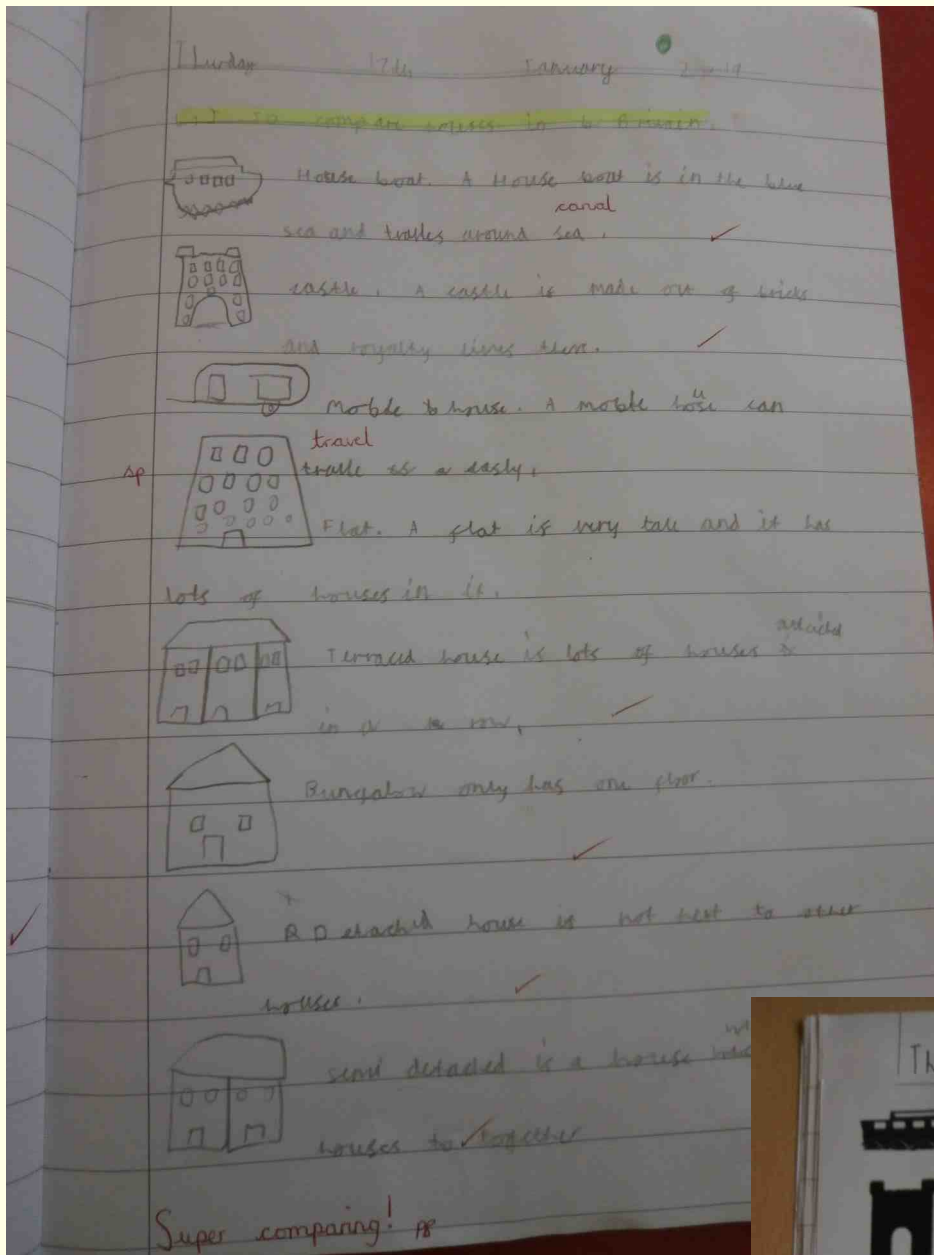 Thurday 17th January 2019
LI to compare houses in b Britain.
House boat. A House boat is in the blue
canal
sea and tralles around sea.
castle. A castle is made out of bricks
and royalty lives there.
Moble b house. A moble house can
travel
sp tralle is a easly.
Flat. A flat is very tale and it has
lots of houses in it.
attached
Terraced house is lots of houses
in a row,
Bungalow only has one floor.
A Detached house is not next to other
houses.
semi detached is a house
houses to together
Super comparing!